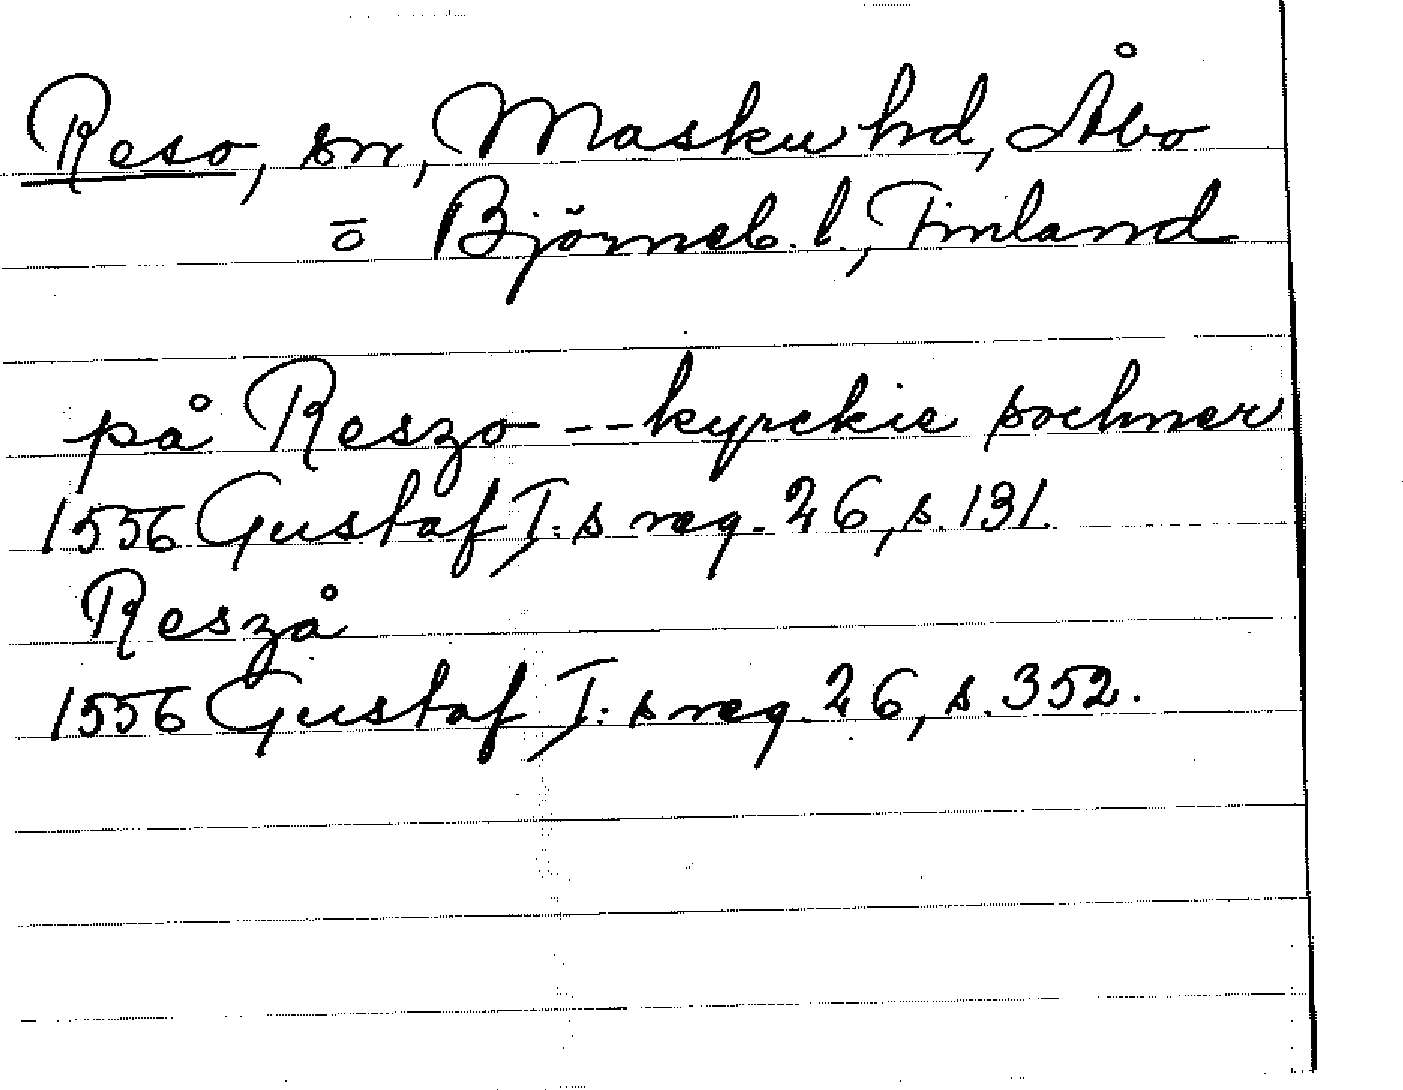 Reso, sn, Masku hd, Åbo
o Björneb. l., Finland
på Reszo -- kyrckie sochner
1556 Gustaf I:s reg. 26, s. 131.
Reszå
1556 Gustaf I:s reg. 26, s. 352.